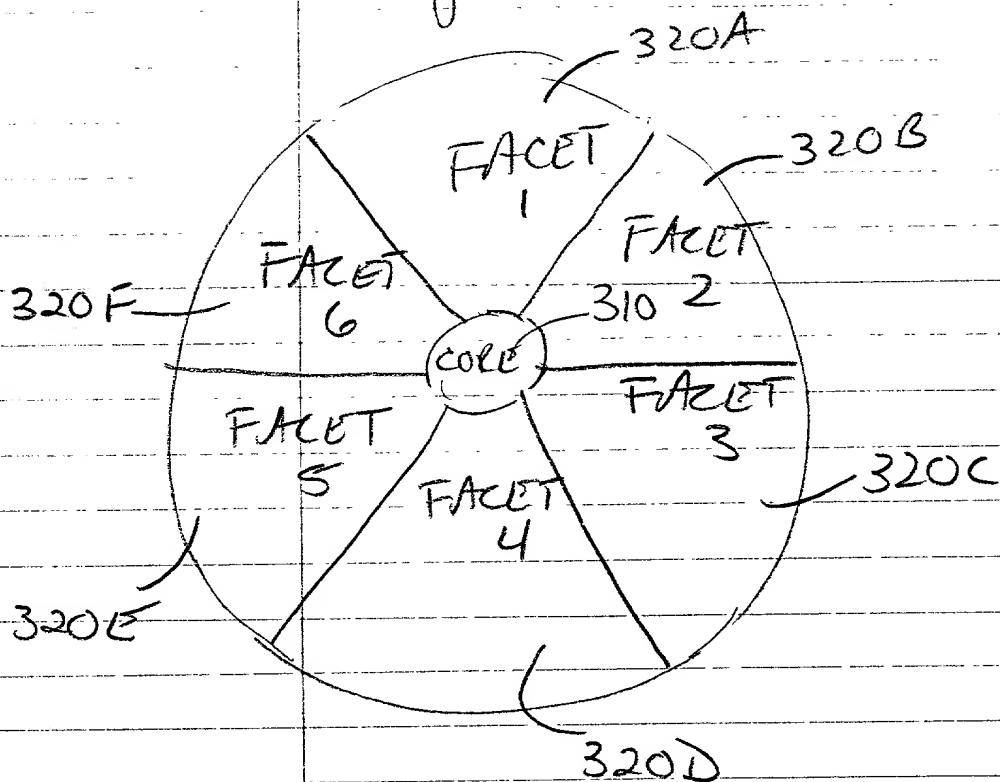 320A
FACET
1
320B
FACET
2
320F
FACET
6
310
CORE
FACET
3
FACET
5
320C
FACET
4
320E
320D